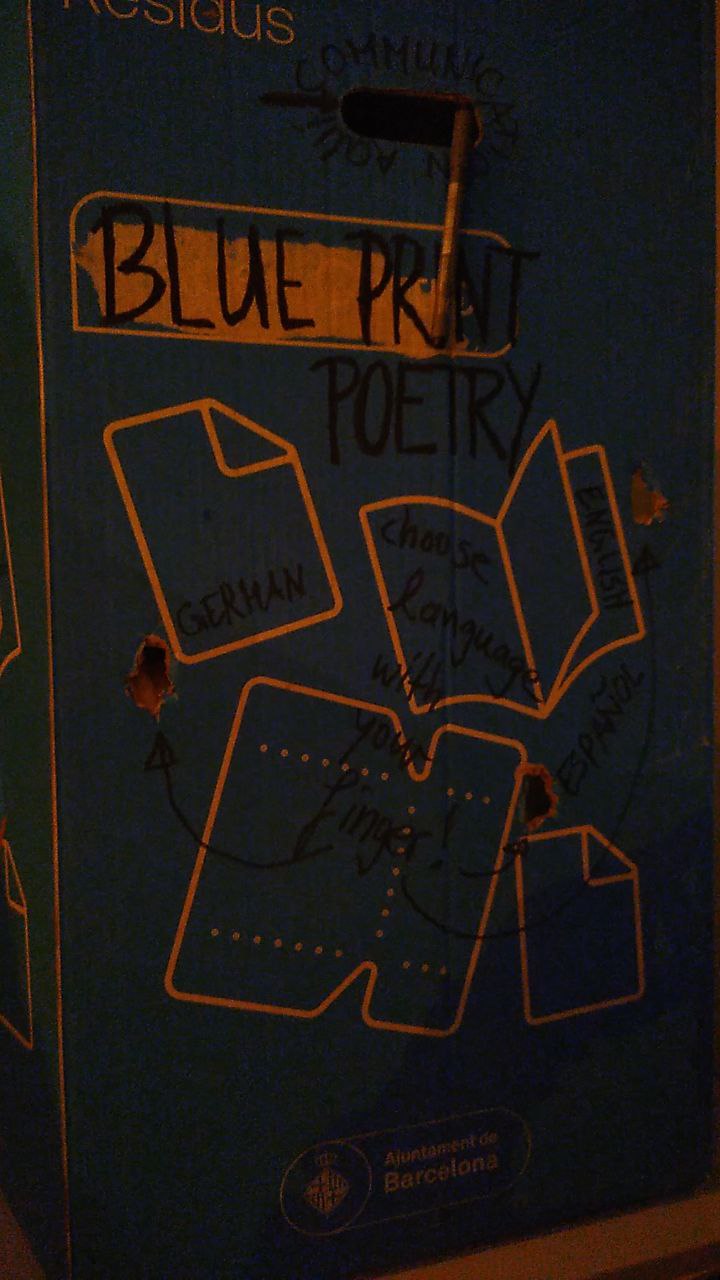 Residus
COMMUNICATION AQUÍ
BLUE PRINT
POETRY
GERMAN
choose
language
with
your
finger!
ENGLISH
ESPAÑOL
Ajuntament de
Barcelona